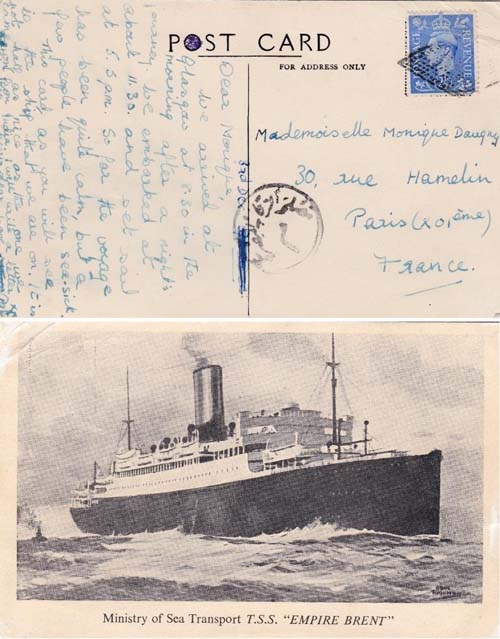 POST CARD
FOR ADDRESS ONLY
POSTAGE
REVENUE
3rd Dec
Dear Monique,
We arrived at
Glasgow at 8.30 in the
morning after a night's
journey. We embarked at
about 11.30. and set sail
at 5.5am. So far the voyage
has been quite calm, but a
few people have been sea-sick.
This card as you will see
is the ship that we are on, it is
not half as nice as the one
from India, I will write a
Mademoiselle Monique
30, rue Hamelin
Paris
France.
Ministry of Sea Transport T.S.S. "EMPIRE BRENT"